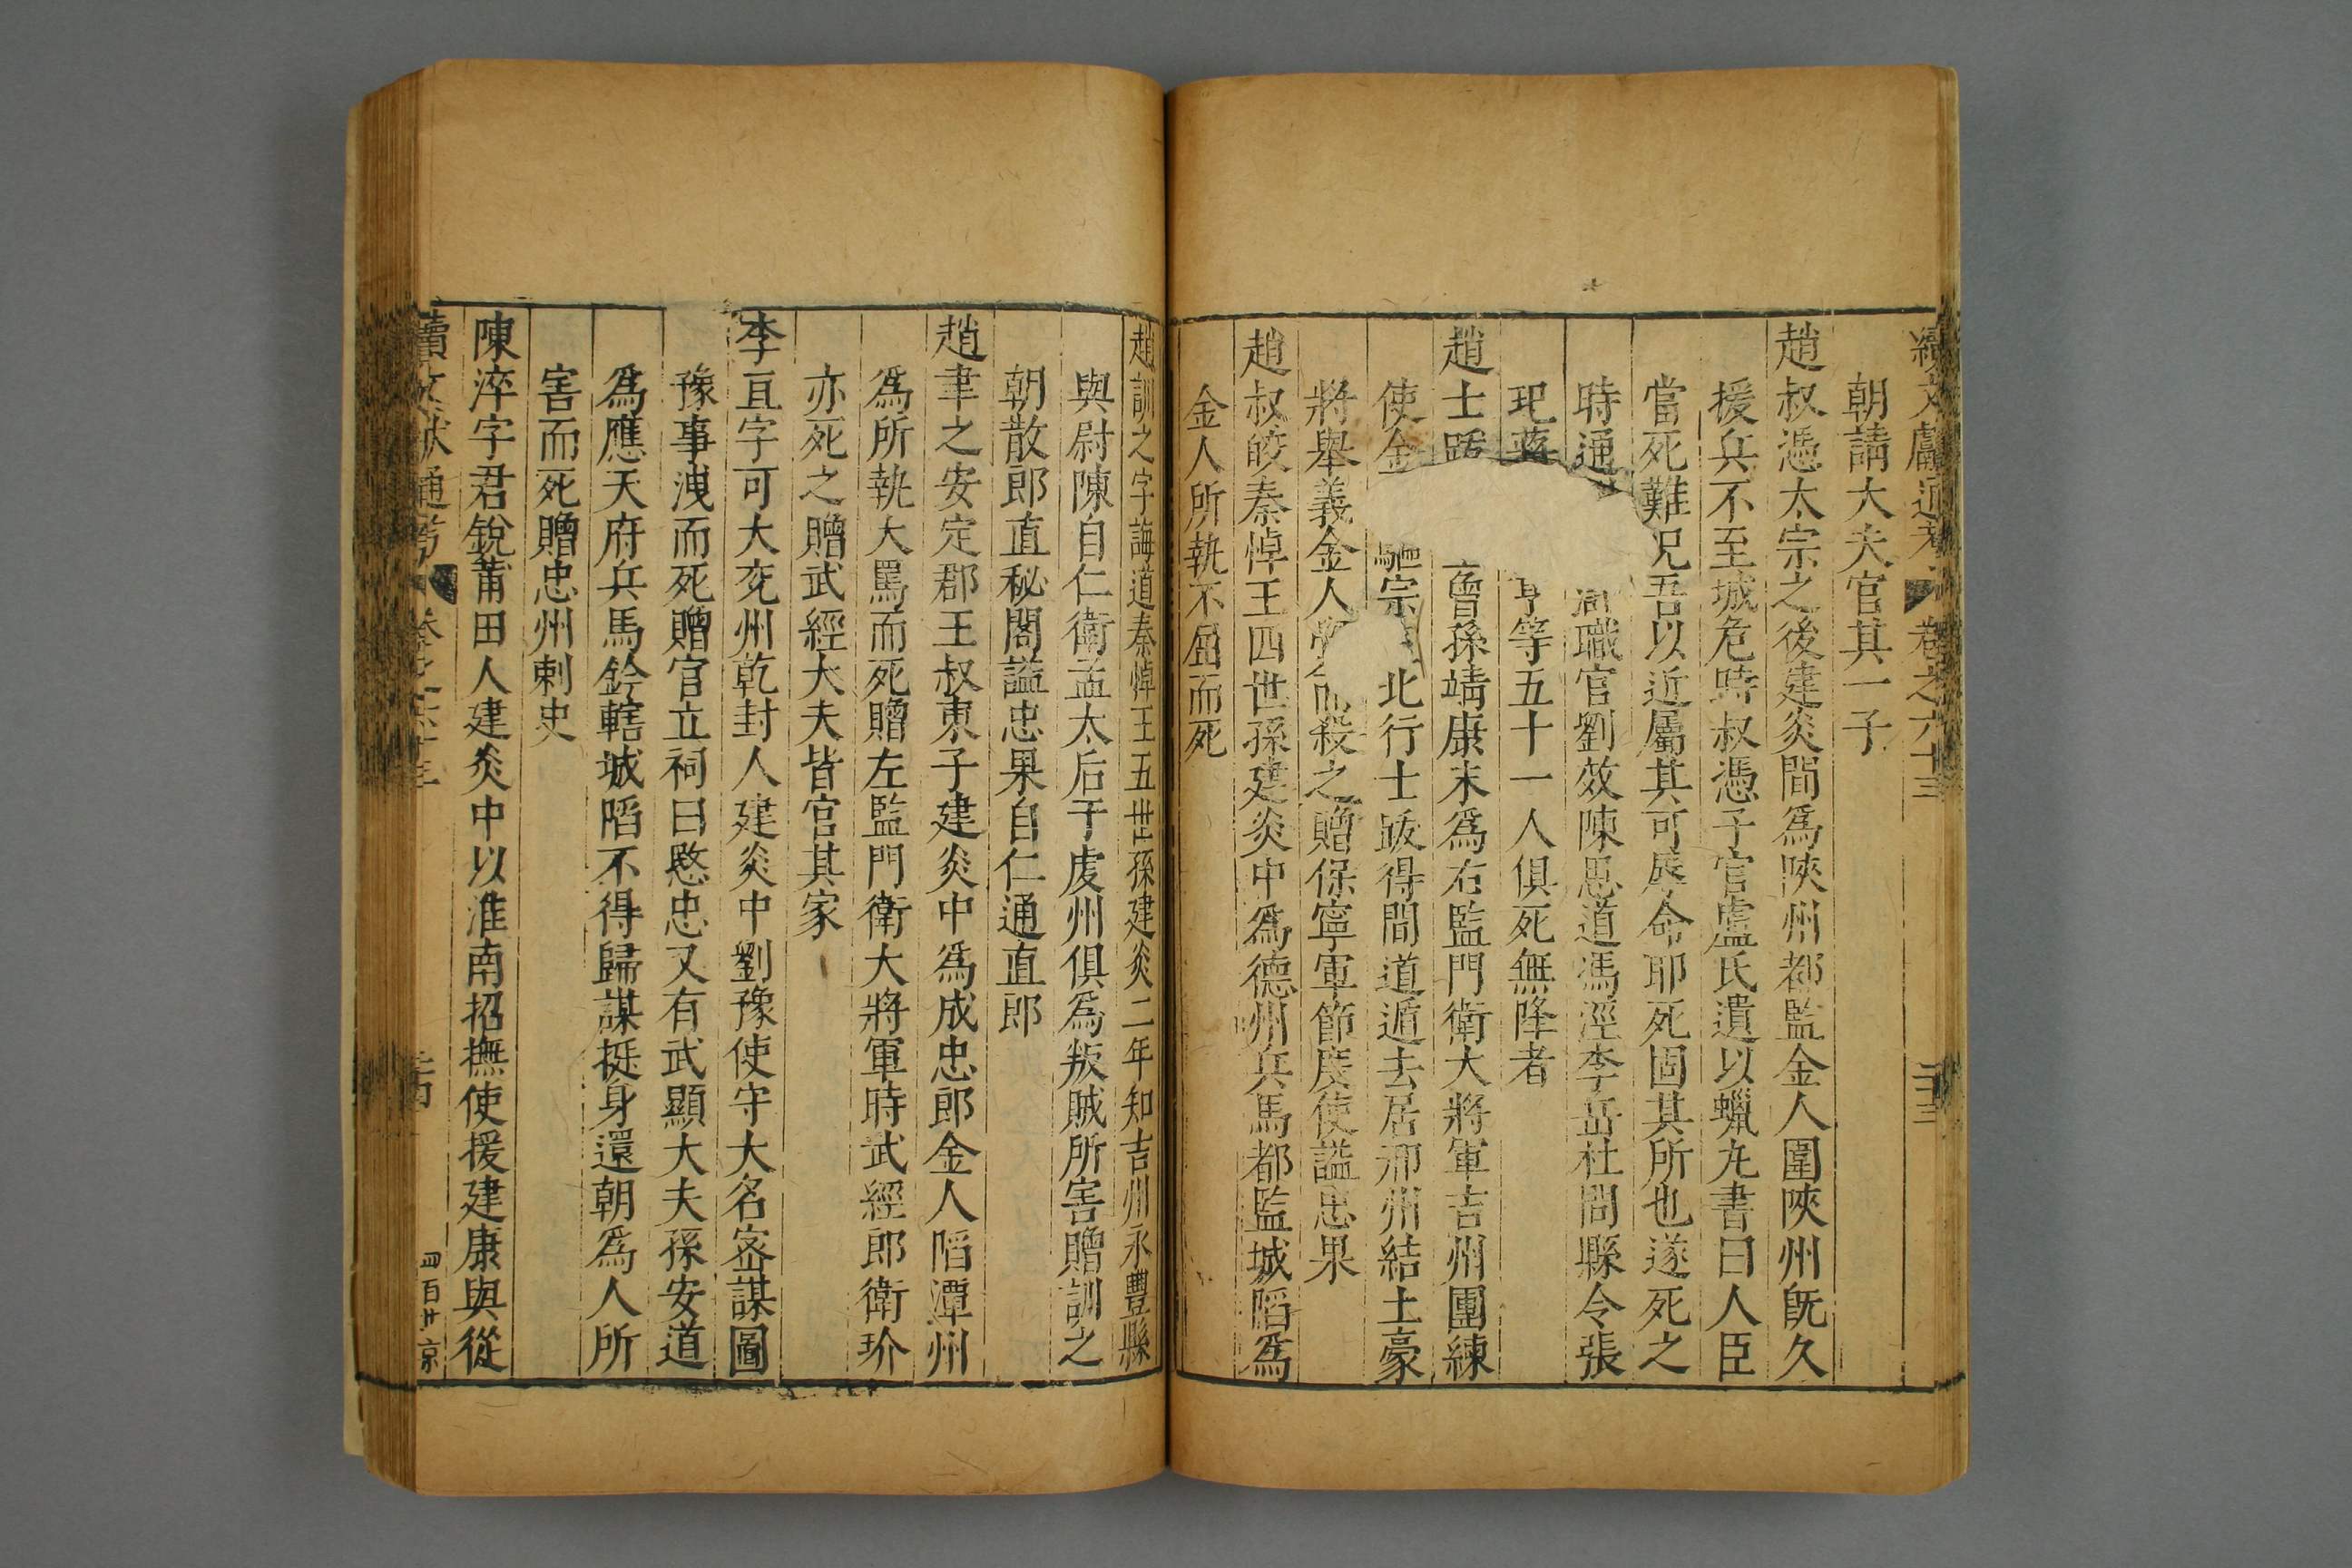 續文獻通考 卷之六十三 二十三
朝請大夫官其一子
趙叔憑太宗之後建炎間爲陜州都監金人圍陜州旣久
援兵不至城危時叔憑子官盧氏遺以蠟丸書曰人臣
當死難況吾以近屬其可辱命耶死固其所也遂死之
時通職官劉效陳思道馮涇李岳杜開縣令張
玘蔣亨等五十一人俱死無降者
趙士跋曾孫靖康末爲右監門衛大將軍吉州團練
使金驅宗北行士跋得間道遁去居邢州結土豪
將舉義金人殺之贈保寧軍節度使謚忠果
趙叔皎秦悼王四世孫建炎中爲德州兵馬都監城陷爲
金人所執不屈而死
趙訓之字誨道秦悼王五世孫建炎二年知吉州永豐縣
與尉陳自仁衛孟太后于虔州俱爲叛賊所害贈訓之
朝散郎直秘閣謚忠果自仁通直郎
趙聿之安定郡王叔東子建炎中爲成忠郎金人陷潭州
爲所執大罵而死贈左監門衛大將軍時武經郎衛玠
亦死之贈武經大夫皆官其家
李亘字可大兖州乾封人建炎中劉豫使守大名密謀圖
豫事洩而死贈官立祠曰愍忠又有武顯大夫孫安道
爲應天府兵馬鈐轄城陷不得歸謀挺身還朝爲人所
害而死贈忠州刺史
陳淬字君銳莆田人建炎中以淮南招撫使援建康與從
續文獻通考 卷之六十三 二十四 四百廿京